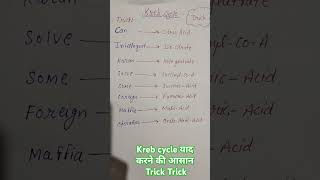 Kreb cycle
Trick:
Trick
Can → Citric Acid
Intelligent → Iso-citrate
Karan → Keto glutarate
Solve → Succinyl-Co-A
Some → Succinic-Acid
Foreign → Fumaric Acid
Maffia → Malic-Acid
Oxalo-Acetic-Acid
Solve
Some
Foreign
Maffia
Kreb cycle याद
करने की आसान
Trick Trick